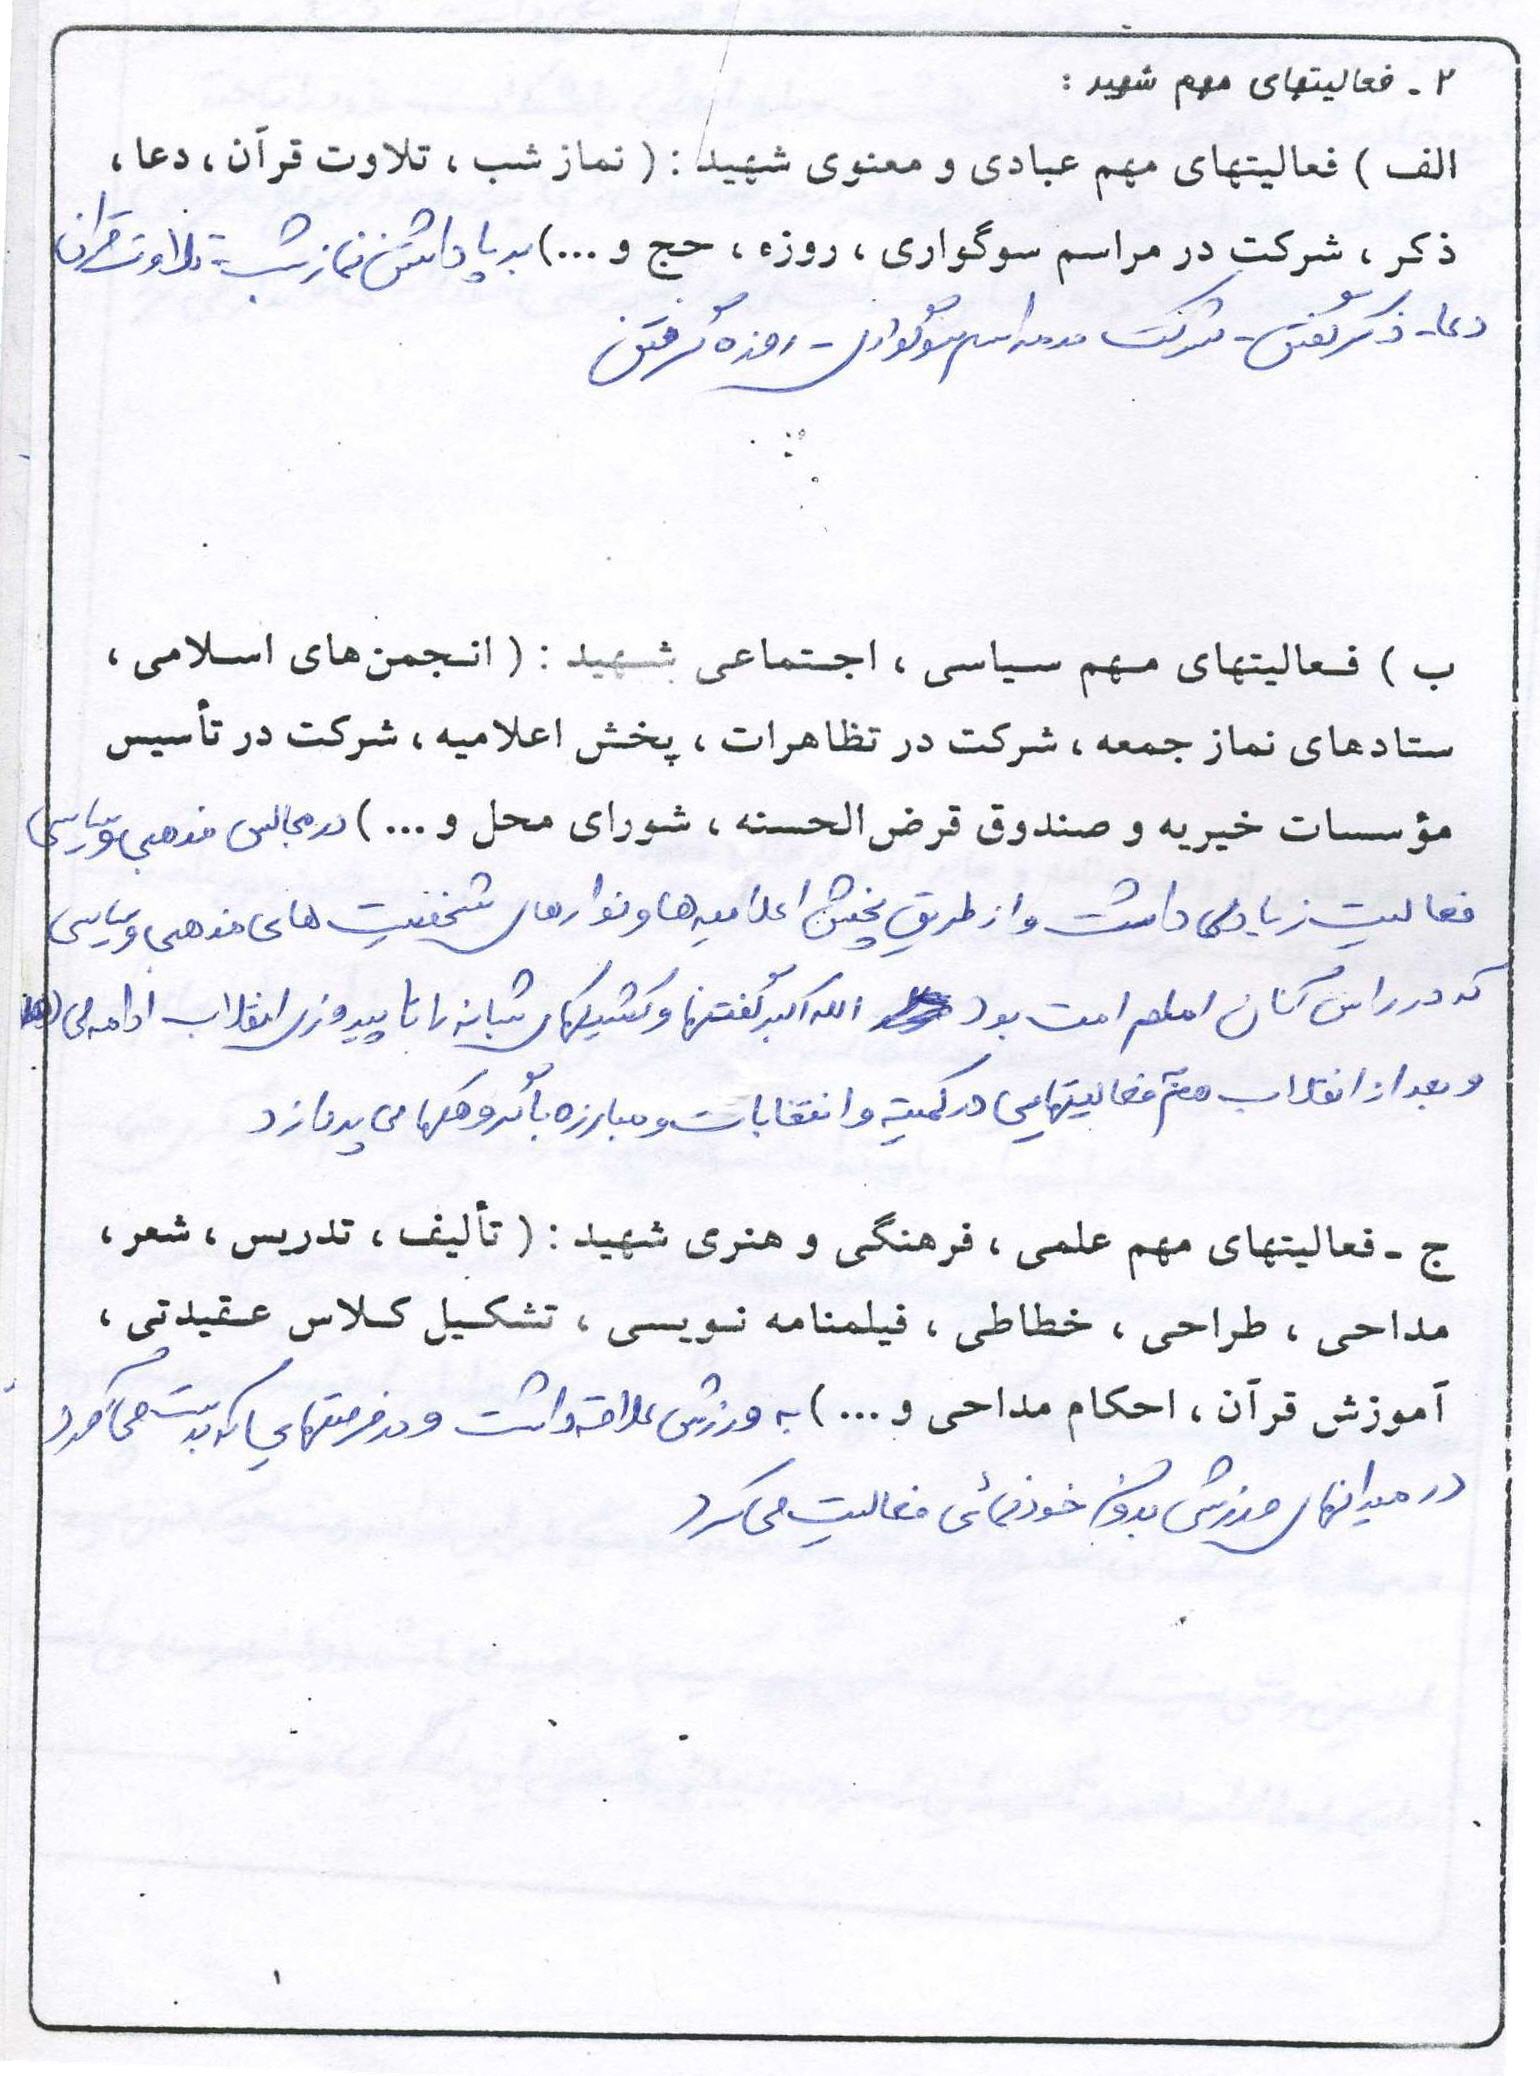 ۲ - فعالیتهای مهم شهید :
الف ) فعالیتهای مهم عبادی و معنوی شهید : ( نماز شب ، تلاوت قرآن ، دعا ،
ذکر ، شرکت در مراسم سوگواری ، روزه ، حج و ... ) برپا داشتن نماز شب - تلاوت قرآن
دعا - ذکر گفتن - شرکت در مراسم سوگواری - روزه گرفتن
ب ) فعالیتهای مهم سیاسی ، اجتماعی شهید : ( انجمن‌های اسلامی ،
ستادهای نماز جمعه ، شرکت در تظاهرات ، پخش اعلامیه ، شرکت در تأسیس
مؤسسات خیریه و صندوق قرض‌الحسنه ، شورای محل و ... ) در مجالس مذهبی و سیاسی
فعالیت زیادی داشت و از طریق پخش اعلامیه ها و نوارهای شخصیت های مذهبی و سیاسی
که در راس آنان امام امت بود الله اکبر گفتنها و کشیکهای شبانه را تا پیروزی انقلاب ادامه می
و بعد از انقلاب هم فعالیتهایی در کمیته و انتخابات و مبارزه با گروهکها می پردازد
ج - فعالیتهای مهم علمی ، فرهنگی و هنری شهید : ( تألیف ، تدریس ، شعر ،
مداحی ، طراحی ، خطاطی ، فیلمنامه نویسی ، تشکیل کلاس عقیدتی ،
آموزش قرآن ، احکام مداحی و ... ) به ورزش علاقه داشت و در فرصتهایی که بدست می آورد
در میدانهای ورزشی بدون خودنمائی فعالیت می کرد